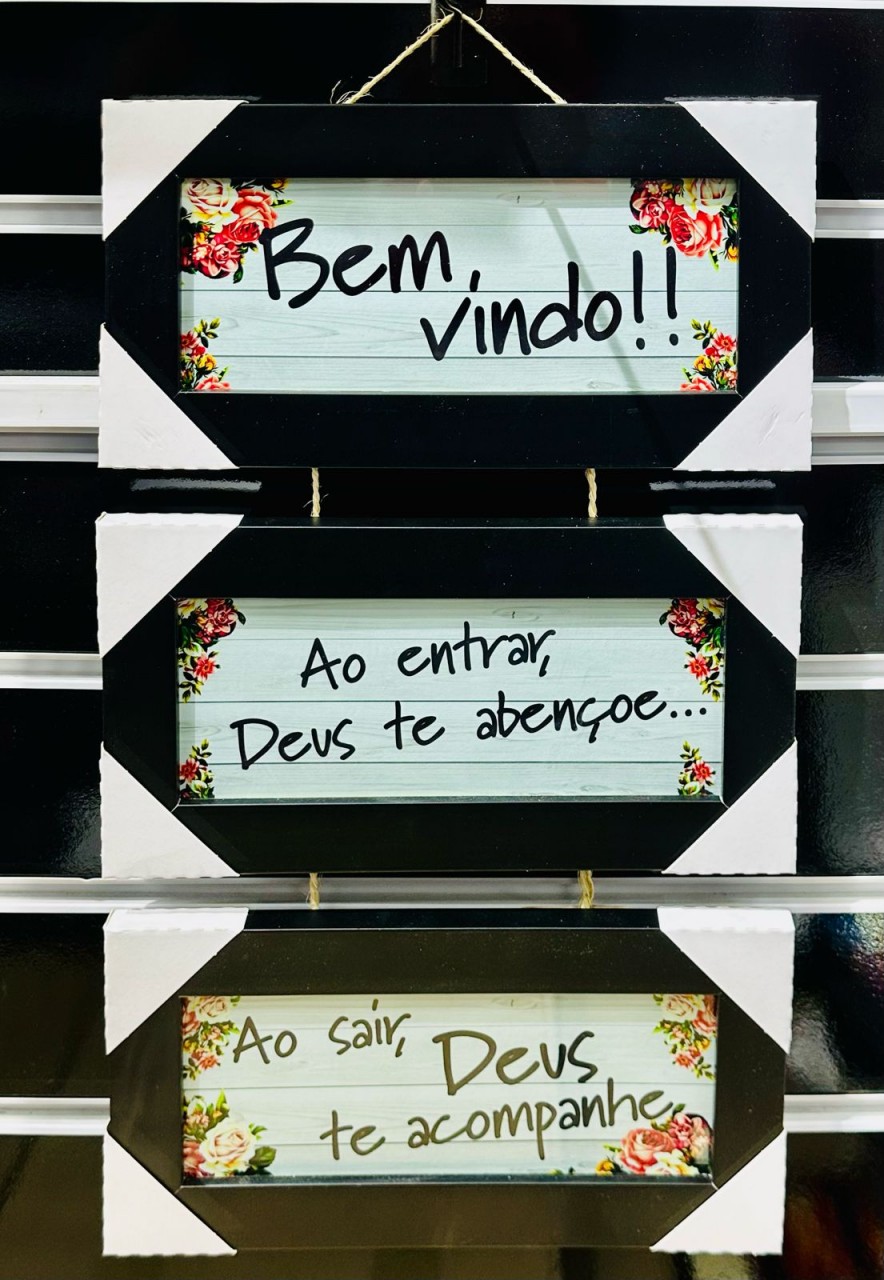 Bem
vindo!!
Ao entrar,
Deus te abençoe...
Ao sair, Deus
te acompanhe